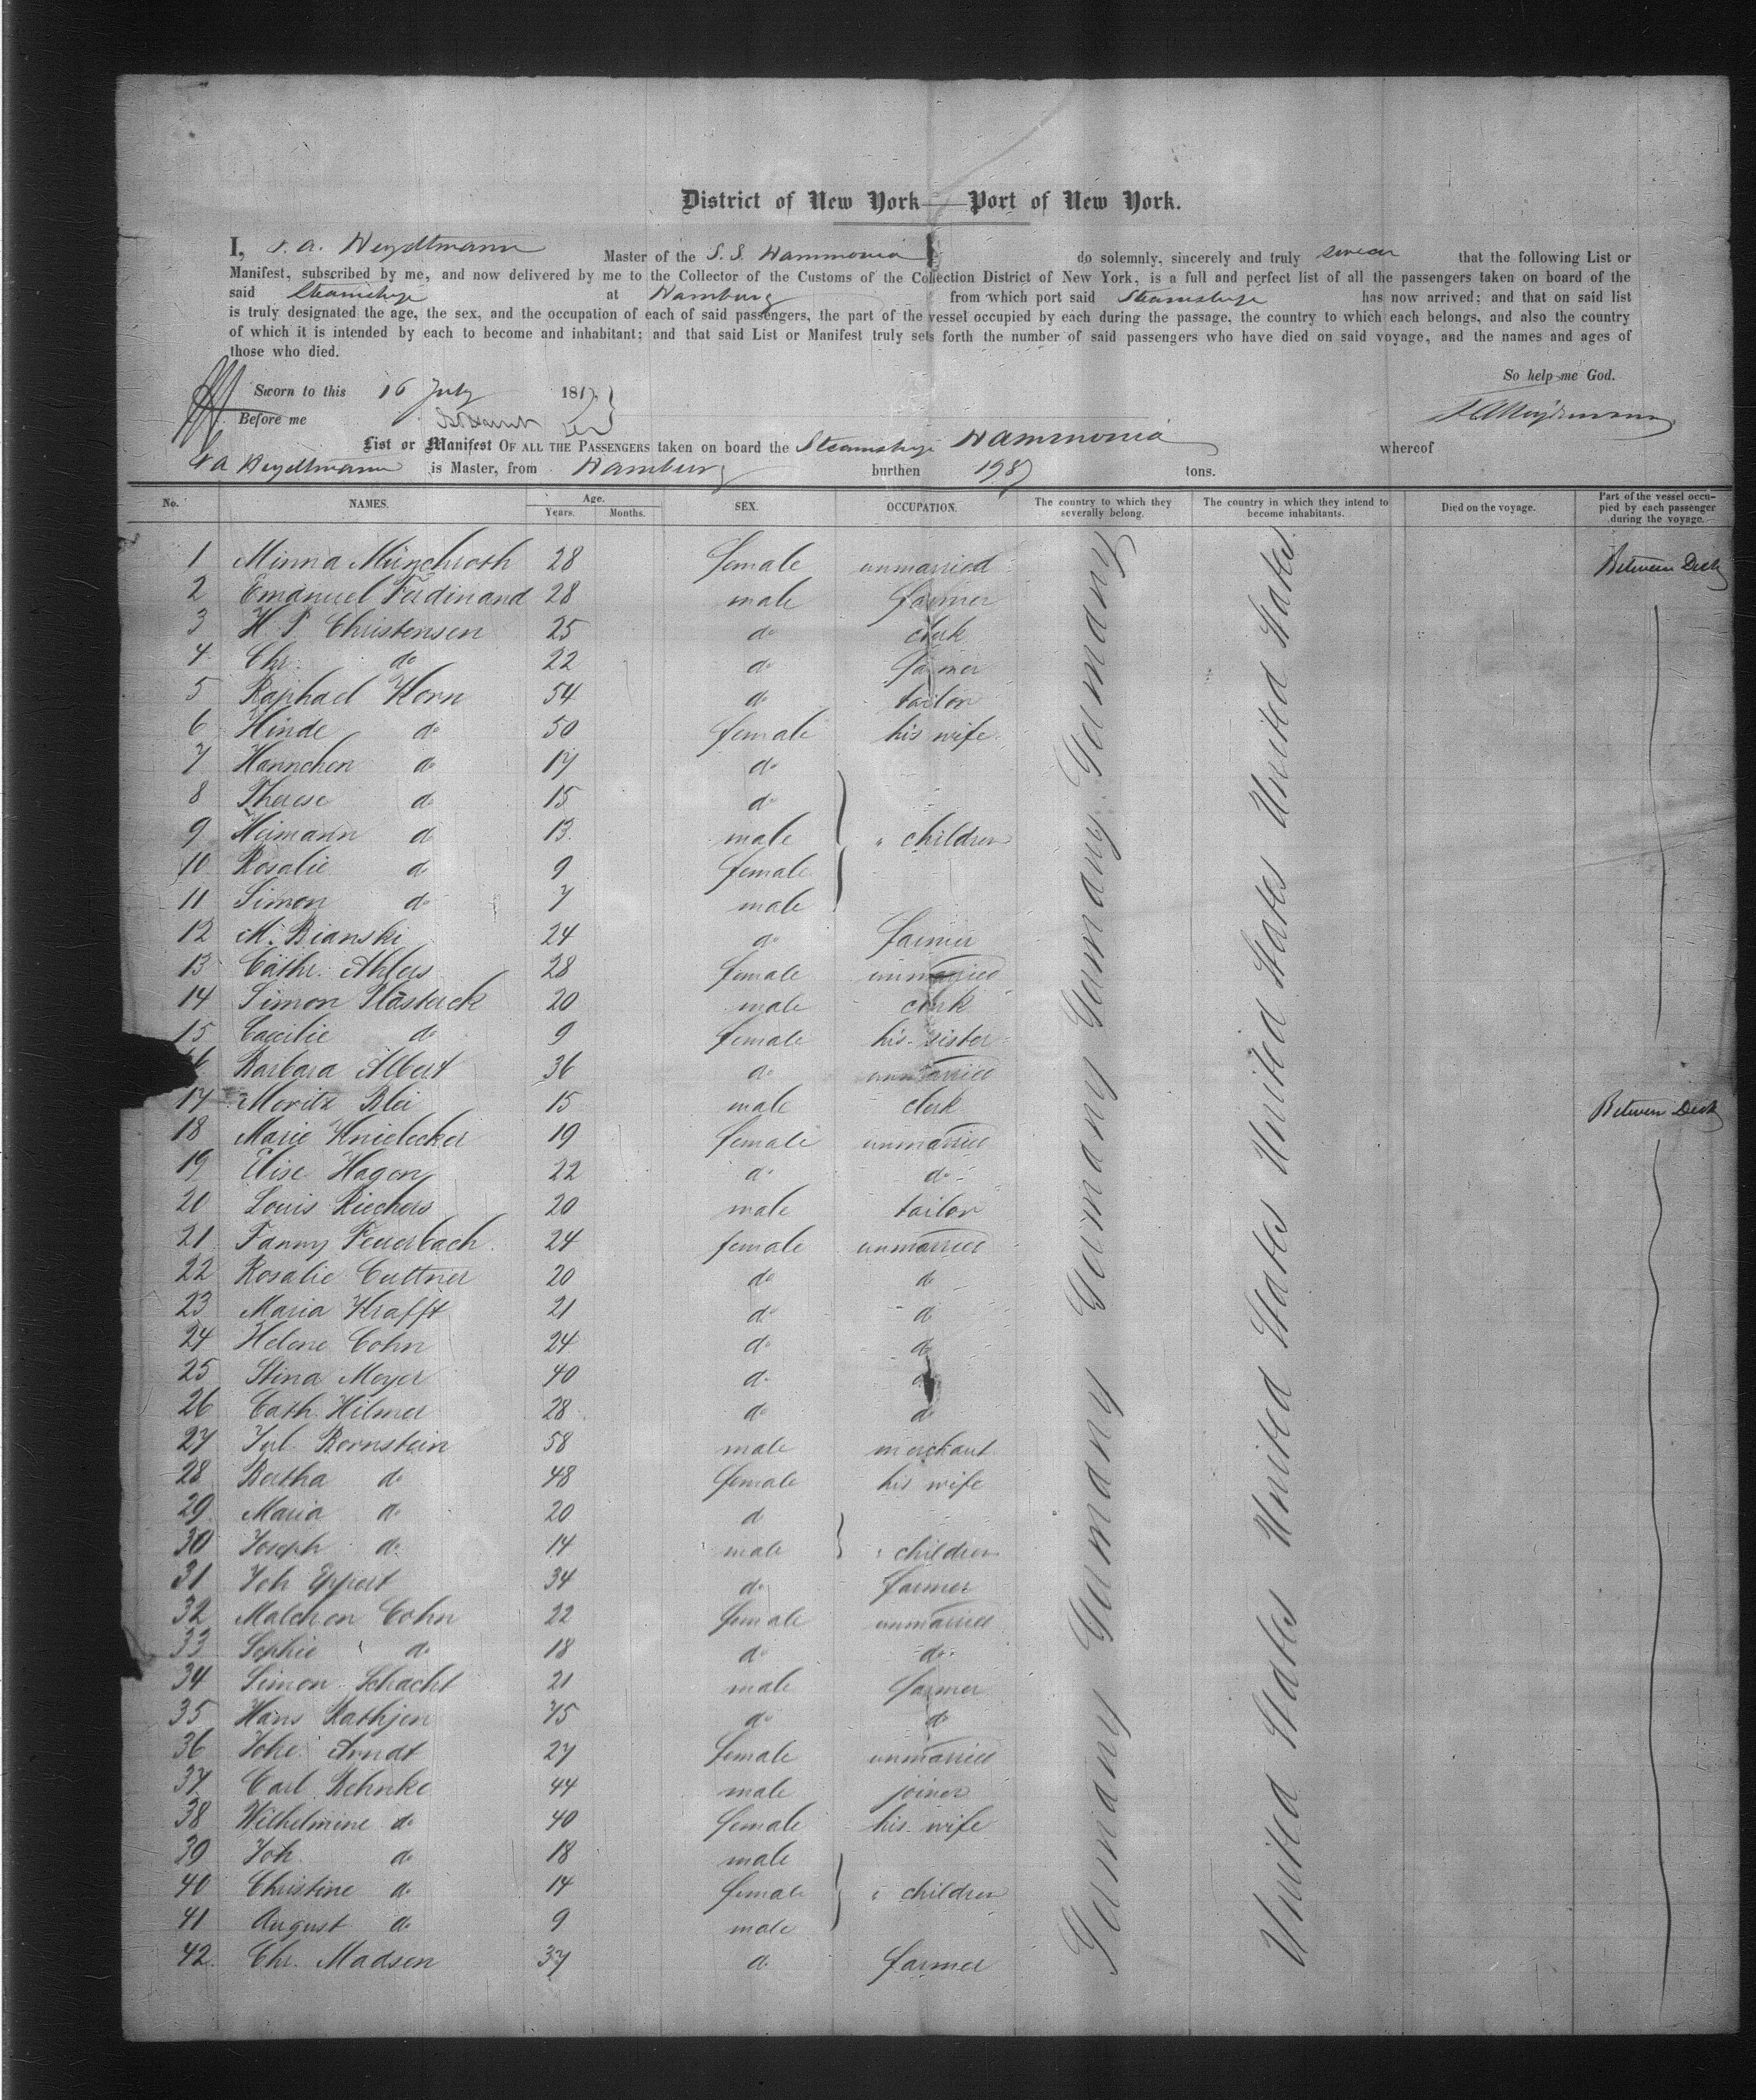 District of New York—Port of New York.
I, F. A. Heydtmann Master of the S. S. Hammonia do solemnly, sincerely and truly swear that the following List or
Manifest, subscribed by me, and now delivered by me to the Collector of the Customs of the Collection District of New York, is a full and perfect list of all the passengers taken on board of the
said Steamship at Hamburg from which port said Steamship has now arrived; and that on said list
is truly designated the age, the sex, and the occupation of each of said passengers, the part of the vessel occupied by each during the passage, the country to which each belongs, and also the country
of which it is intended by each to become and inhabitant; and that said List or Manifest truly sets forth the number of said passengers who have died on said voyage, and the names and ages of
those who died.
So help me God.
Sworn to this 16 July 187
Before me
List or Manifest OF ALL THE PASSENGERS taken on board the Steamship Hammonia whereof
Heydtmann is Master, from Hamburg burthen 1987 tons.
No. NAMES. Age. Years. Months. SEX. OCCUPATION. The country to which they severally belong. The country in which they intend to become inhabitants. Died on the voyage. Part of the vessel occupied by each passenger during the voyage.
1 Minna Münchroth 28 female unmarried Between Deck
2 Emanuel Ferdinand 28 male farmer
3 H. P. Christensen 25 do clerk
4 Chr. do 22 do farmer
5 Raphael Horn 54 do tailor
6 Hinde do 50 female his wife
7 Hannchen do 17 do
8 Therese do 15 do
9 Heimann do 13 male " children
10 Rosalie do 9 female
11 Simon do 7 male
12 M. Bianski 24 do farmer
13 Cathr. Ahlers 28 female unmarried
14 Simon Plasterck 20 male clerk
15 Caecilie do 9 female his sister
16 Barbara Albert 36 do unmarried
17 Moritz Blei 15 male clerk Between Deck
18 Marie Kniebecker 19 female unmarried
19 Elise Hagen 22 do do
20 Louis Riechers 20 male tailor
21 Fanny Feuerbach 24 female unmarried
22 Rosalie Cuttner 20 do do
23 Maria Krafft 21 do do
24 Helene Cohn 24 do do
25 Stina Meyer 40 do do
26 Cath Hilmer 28 do do
27 Jul. Bernstein 58 male merchant
28 Bertha do 48 female his wife
29 Maria do 20 do
30 Joseph do 14 male " children
31 Joh Eppert 34 do farmer
32 Malchen Cohn 22 female unmarried
33 Sophie do 18 do do
34 Simon Schacht 21 male farmer
35 Hans Rathjen 75 do do
36 Johe. Arndt 27 female unmarried
37 Carl Behnke 44 male joiner
38 Wilhelmine do 40 female his wife
39 Joh. do 18 male
40 Christine do 14 female " children
41 August do 9 male
42 Chr. Madsen 37 do farmer
Germany Germany Germany Germany Germany Germany
United States United States United States United States United States